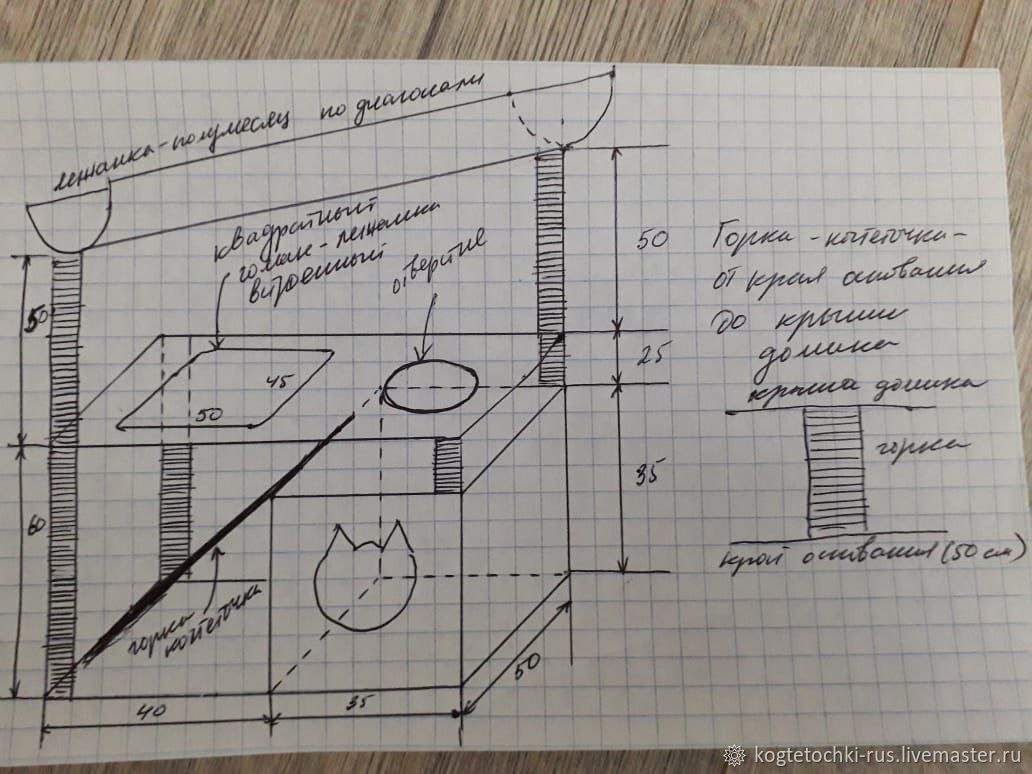 лежанка-полумесяц по диагонали
квадратный
гамак-лежанка
встроенный
отверстие
50
45
50
60
горка
когтеточка
40
35
50
50
25
35
Горка-когтеточка-
от края основания
до крыши
домика
крыша домика
горка
край основания (50 см)
kogtetochki-rus.livemaster.ru